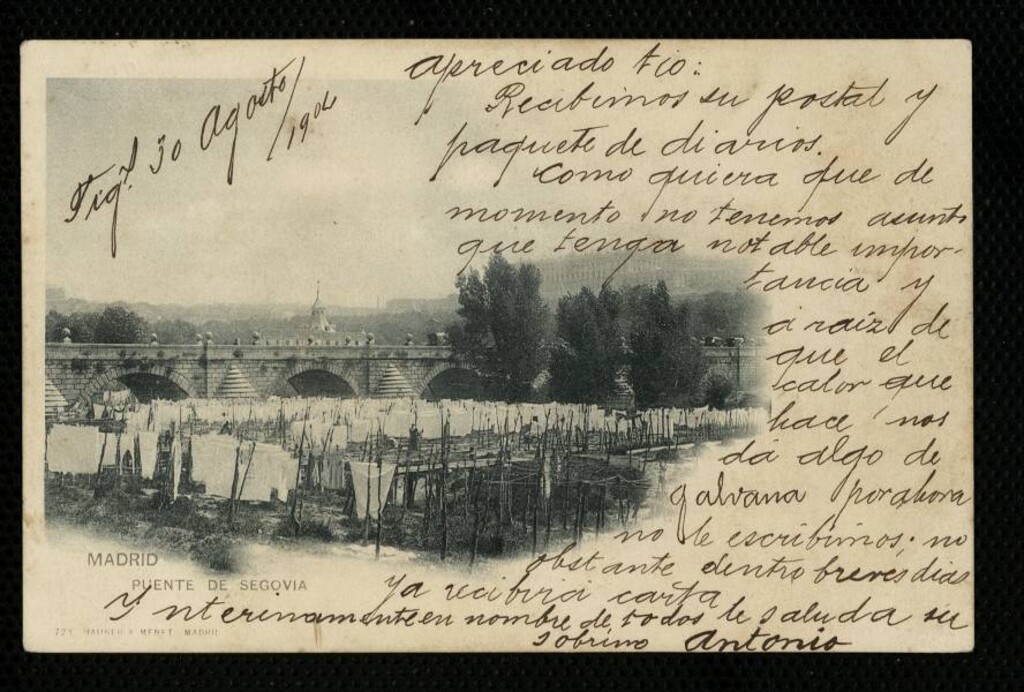 Figs 30 Agosto/1904
Apreciado tio:
Recibimos su postal y
paquete de diarios.
Como quiera que de
momento no tenemos asunto
que tenga notable impor-
tancia y
á raiz de
que el
calor que
hace, nos
dá algo de
galvana por ahora
no le escribimos; no
obstante dentro breves dias
ya recibirá carta
Y interinamente en nombre de todos le saluda su
sobrino Antonio
MADRID
PUENTE DE SEGOVIA
HAUSER Y MENET. MADRID